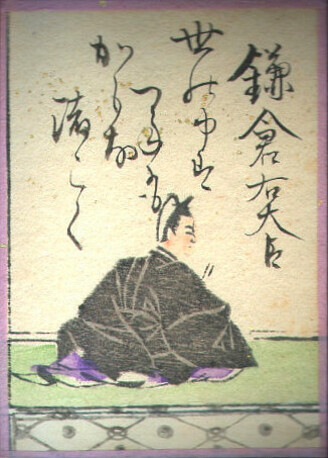 鎌倉右大臣
世の中は
つねにも
かもな
渚こく